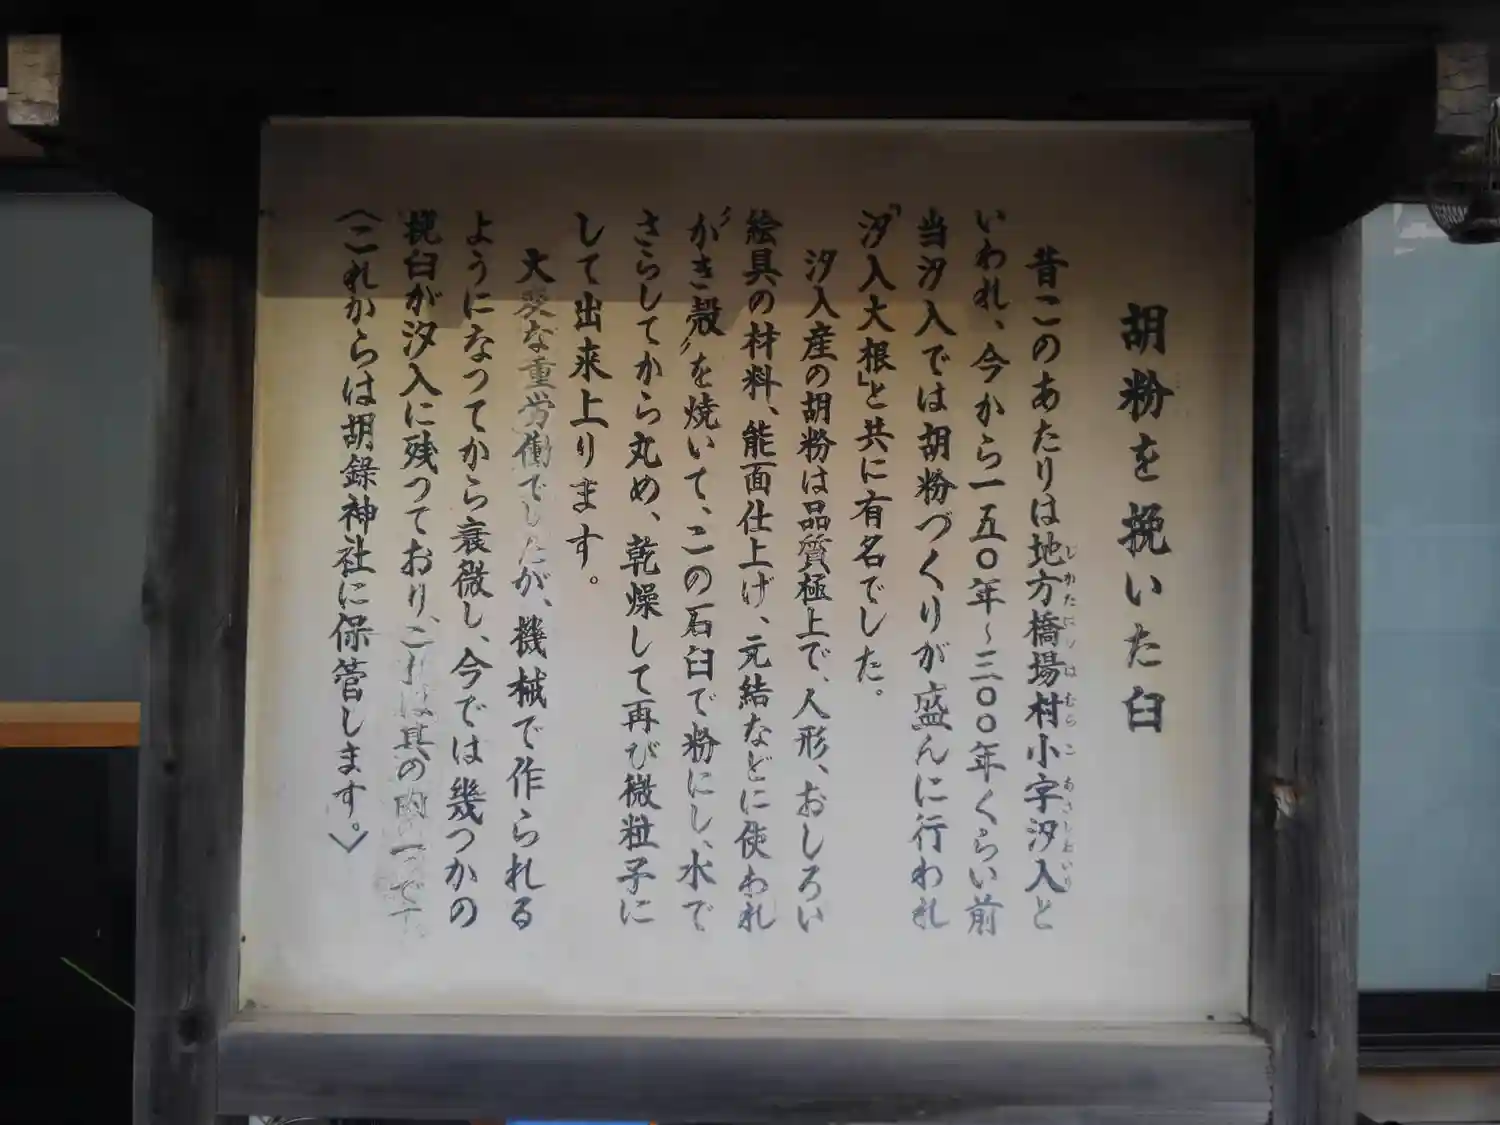 胡粉を挽いた臼
昔このあたりは地方橋場村小字汐入と
いわれ、今から一五〇年〜三〇〇年くらい前
当汐入では胡粉づくりが盛んに行われ
「汐入大根」と共に有名でした。
汐入産の胡粉は品質極上で、人形、おしろい
絵具の材料、能面仕上げ、元結などに使われ
〃がき殻〃を焼いて、この石臼で粉にし、水で
さらしてから丸め、乾燥して再び微粒子に
して出来上ります。
大変な重労働でしたが、機械で作られる
ようになってから衰微し、今では幾つかの
挽臼が汐入に残っており、これは其の内一つで
（これからは胡録神社に保管します。）